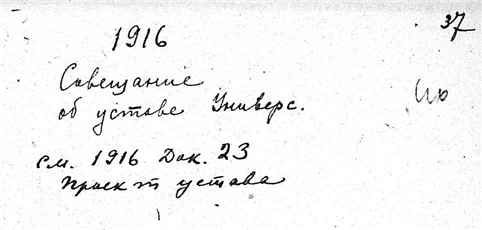 37
1916
Совещание
об уставе Универс.
см. 1916 Док. 23
Проект устава